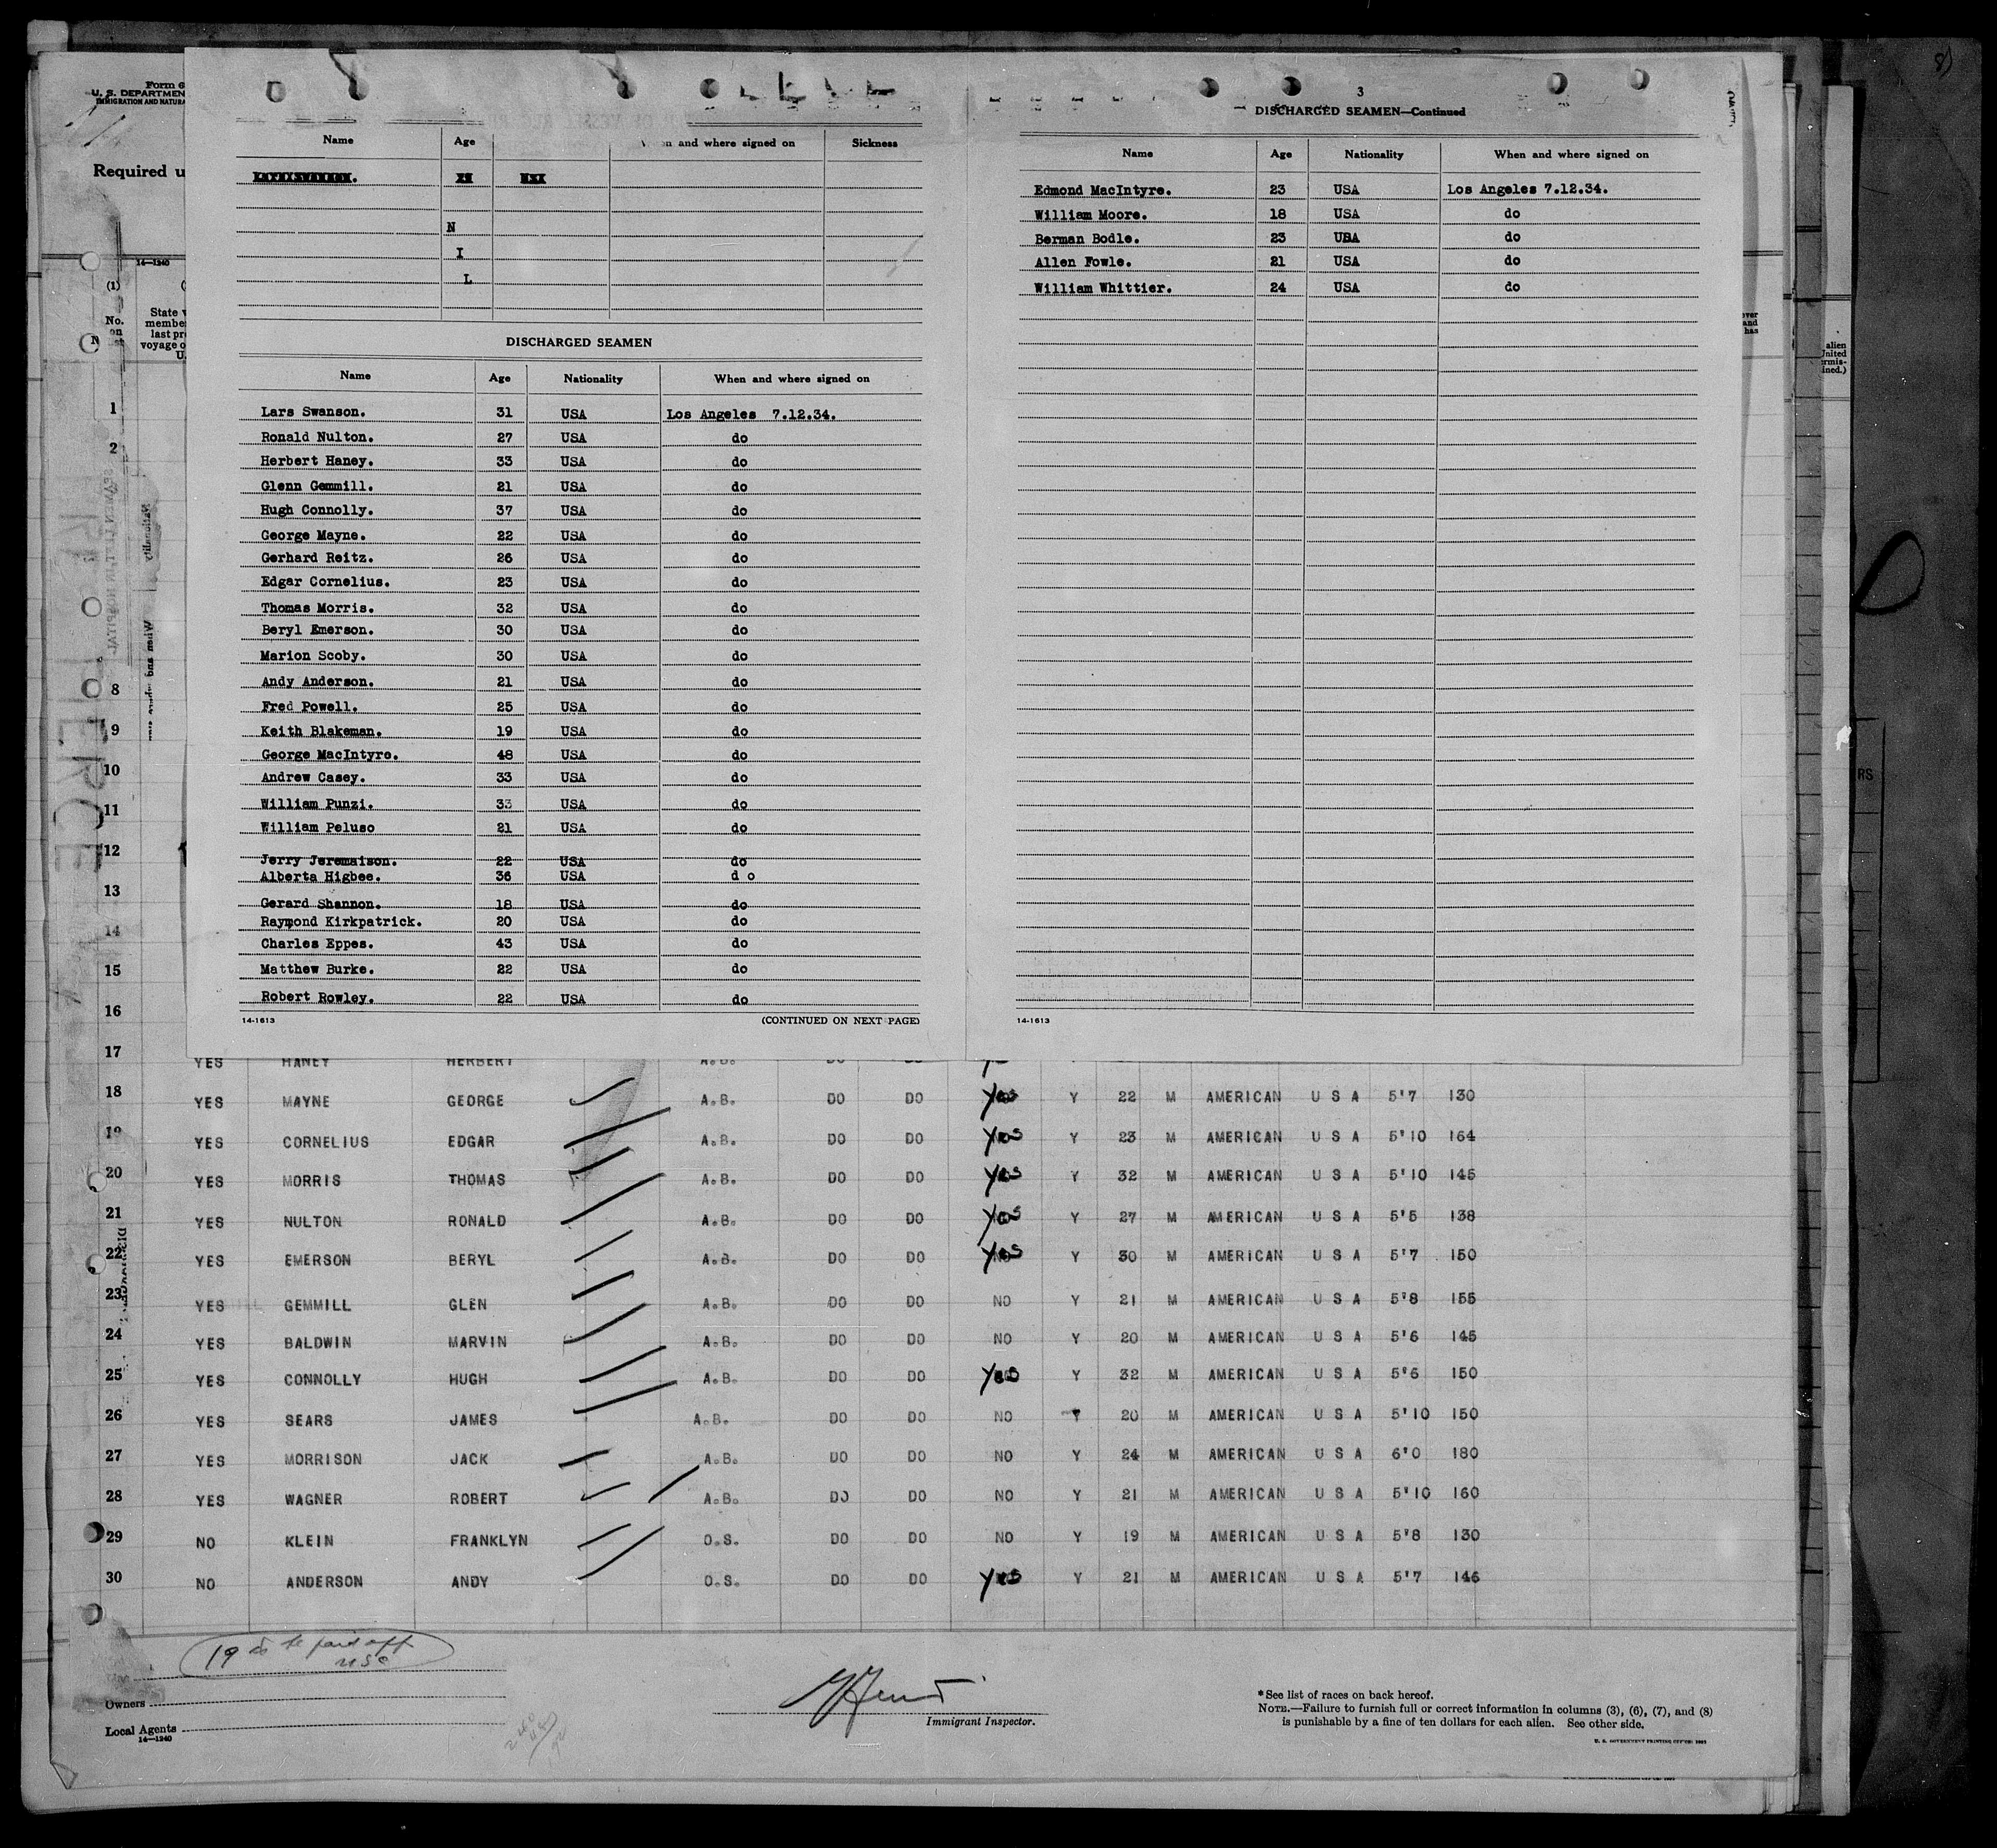 8)
Form 6
U. S. DEPARTMEN
IMMIGRATION AND NATURA
Required u
14—1240
(1)
No.
on
State v
membe
last pr
voyage o
U.
Name Age n and where signed on Sickness
N
I
L
DISCHARGED SEAMEN
Name Age Nationality When and where signed on
Lars Swanson. 31 USA Los Angeles 7.12.34.
Ronald Nulton. 27 USA do
Herbert Haney. 33 USA do
Glenn Gemmill. 21 USA do
Hugh Connolly. 37 USA do
George Mayne. 22 USA do
Gerhard Reitz. 26 USA do
Edgar Cornelius. 23 USA do
Thomas Morris. 32 USA do
Beryl Emerson. 30 USA do
Marion Scoby. 30 USA do
Andy Anderson. 21 USA do
Fred Powell. 25 USA do
Keith Blakeman. 19 USA do
George MacIntyre. 48 USA do
Andrew Casey. 33 USA do
William Punzi. 33 USA do
William Peluso 21 USA do
Jerry Jeremaison. 22 USA do
Alberta Higbee. 36 USA d o
Gerard Shannon. 18 USA do
Raymond Kirkpatrick. 20 USA do
Charles Eppes. 43 USA do
Matthew Burke. 22 USA do
Robert Rowley. 22 USA do
14-1613 (CONTINUED ON NEXT PAGE)
3
DISCHARGED SEAMEN—Continued
Name Age Nationality When and where signed on
Edmond MacIntyre. 23 USA Los Angeles 7.12.34.
William Moore. 18 USA do
Berman Bodle. 23 USA do
Allen Fowle. 21 USA do
William Whittier. 24 USA do
14-1613
over
and
has
alien
United
ermis-
ined.)
RS
1
2
8
9
10
11
12
13
14
15
16
17 YES HANEY HERBERT A.B. DO DO
18 YES MAYNE GEORGE A.B. DO DO Yes Y 22 M AMERICAN U S A 5'7 130
19 YES CORNELIUS EDGAR A.B. DO DO Yes Y 23 M AMERICAN U S A 5'10 164
20 YES MORRIS THOMAS A.B. DO DO Yes Y 32 M AMERICAN U S A 5'10 145
21 YES NULTON RONALD A.B. DO DO Yes Y 27 M AMERICAN U S A 5'5 138
22 YES EMERSON BERYL A.B. DO DO Yes Y 30 M AMERICAN U S A 5'7 150
23 YES GEMMILL GLEN A.B. DO DO NO Y 21 M AMERICAN U S A 5'8 155
24 YES BALDWIN MARVIN A.B. DO DO NO Y 20 M AMERICAN U S A 5'6 145
25 YES CONNOLLY HUGH A.B. DO DO Yes Y 32 M AMERICAN U S A 5'6 150
26 YES SEARS JAMES A.B. DO DO NO Y 20 M AMERICAN U S A 5'10 150
27 YES MORRISON JACK A.B. DO DO NO Y 24 M AMERICAN U S A 6'0 180
28 YES WAGNER ROBERT A.B. DO DO NO Y 21 M AMERICAN U S A 5'10 160
29 NO KLEIN FRANKLYN O.S. DO DO NO Y 19 M AMERICAN U S A 5'8 130
30 NO ANDERSON ANDY O.S. DO DO Yes Y 21 M AMERICAN U S A 5'7 146
19 to be paid off
USC
Owners
Local Agents
14—1240
Immigrant Inspector.
*See list of races on back hereof.
NOTE.—Failure to furnish full or correct information in columns (3), (6), (7), and (8)
is punishable by a fine of ten dollars for each alien. See other side.
U. S. GOVERNMENT PRINTING OFFICE: